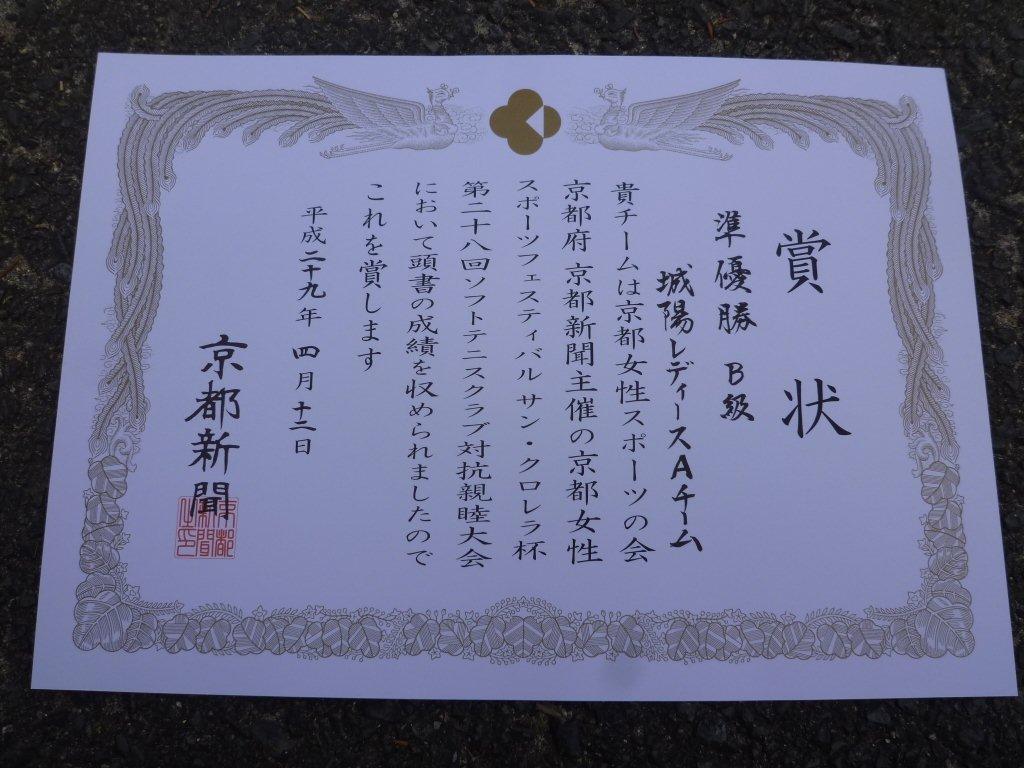 賞状
準優勝 B級
城陽レディースAチーム
貴チームは京都女性スポーツの会
京都府 京都新聞主催の京都女性
スポーツフェスティバル サン・クロレラ杯
第二十八回ソフトテニスクラブ対抗親睦大会
において頭書の成績を収められましたので
これを賞します
平成二十九年 四月十二日
京都新聞
京都
新聞
之印